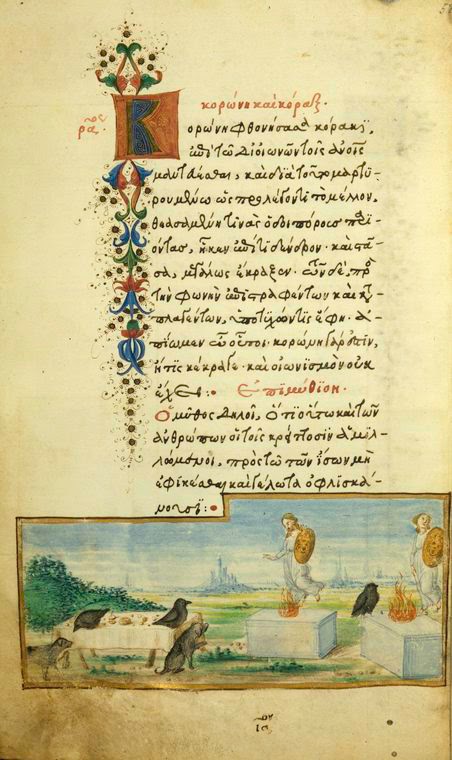 κορώνη καὶ κόραξ.
Κορώνη φθονήσασα κόρακι,
ἐπὶ τῷ δι οἰωνῶν τοῖς ἀνοις
μαντεύεσθαι, καὶ διὰ τοῦτο μαρτυ-
ρουμένῳ ὡς προλέγοντι τὸ μέλλον,
θεασαμένη τινὰς ὁδοιπόρους παριόντας,
ἧκεν ἐπί τι δένδρον. καὶ στᾶ-
σα, μεγάλως ἔκραξεν. τῶν δὲ πρὸς
τὴν φωνὴν ἐπιστραφέντων καὶ κατα-
πλαγέντων, ἔφη. ἀ-
πίωμεν ὦ οὗτοι. κορώνη γάρ ἐστιν,
ἥτις κέκραγε. καὶ οἰωνισμὸν οὐκ
ἔχει:• Ἐπιμύθιον.
Ὁ μῦθος δηλοῖ, ὅτι οὕτω καὶ τῶν
ἀνθρώπων οἱ τοῖς κρείττοσιν ἁμιλ-
λώμενοι, πρὸς τῷ τῶν ἴσων μὴ
ἐφικέσθαι, καὶ γέλωτα ὀφλισκά-
νουσι:•